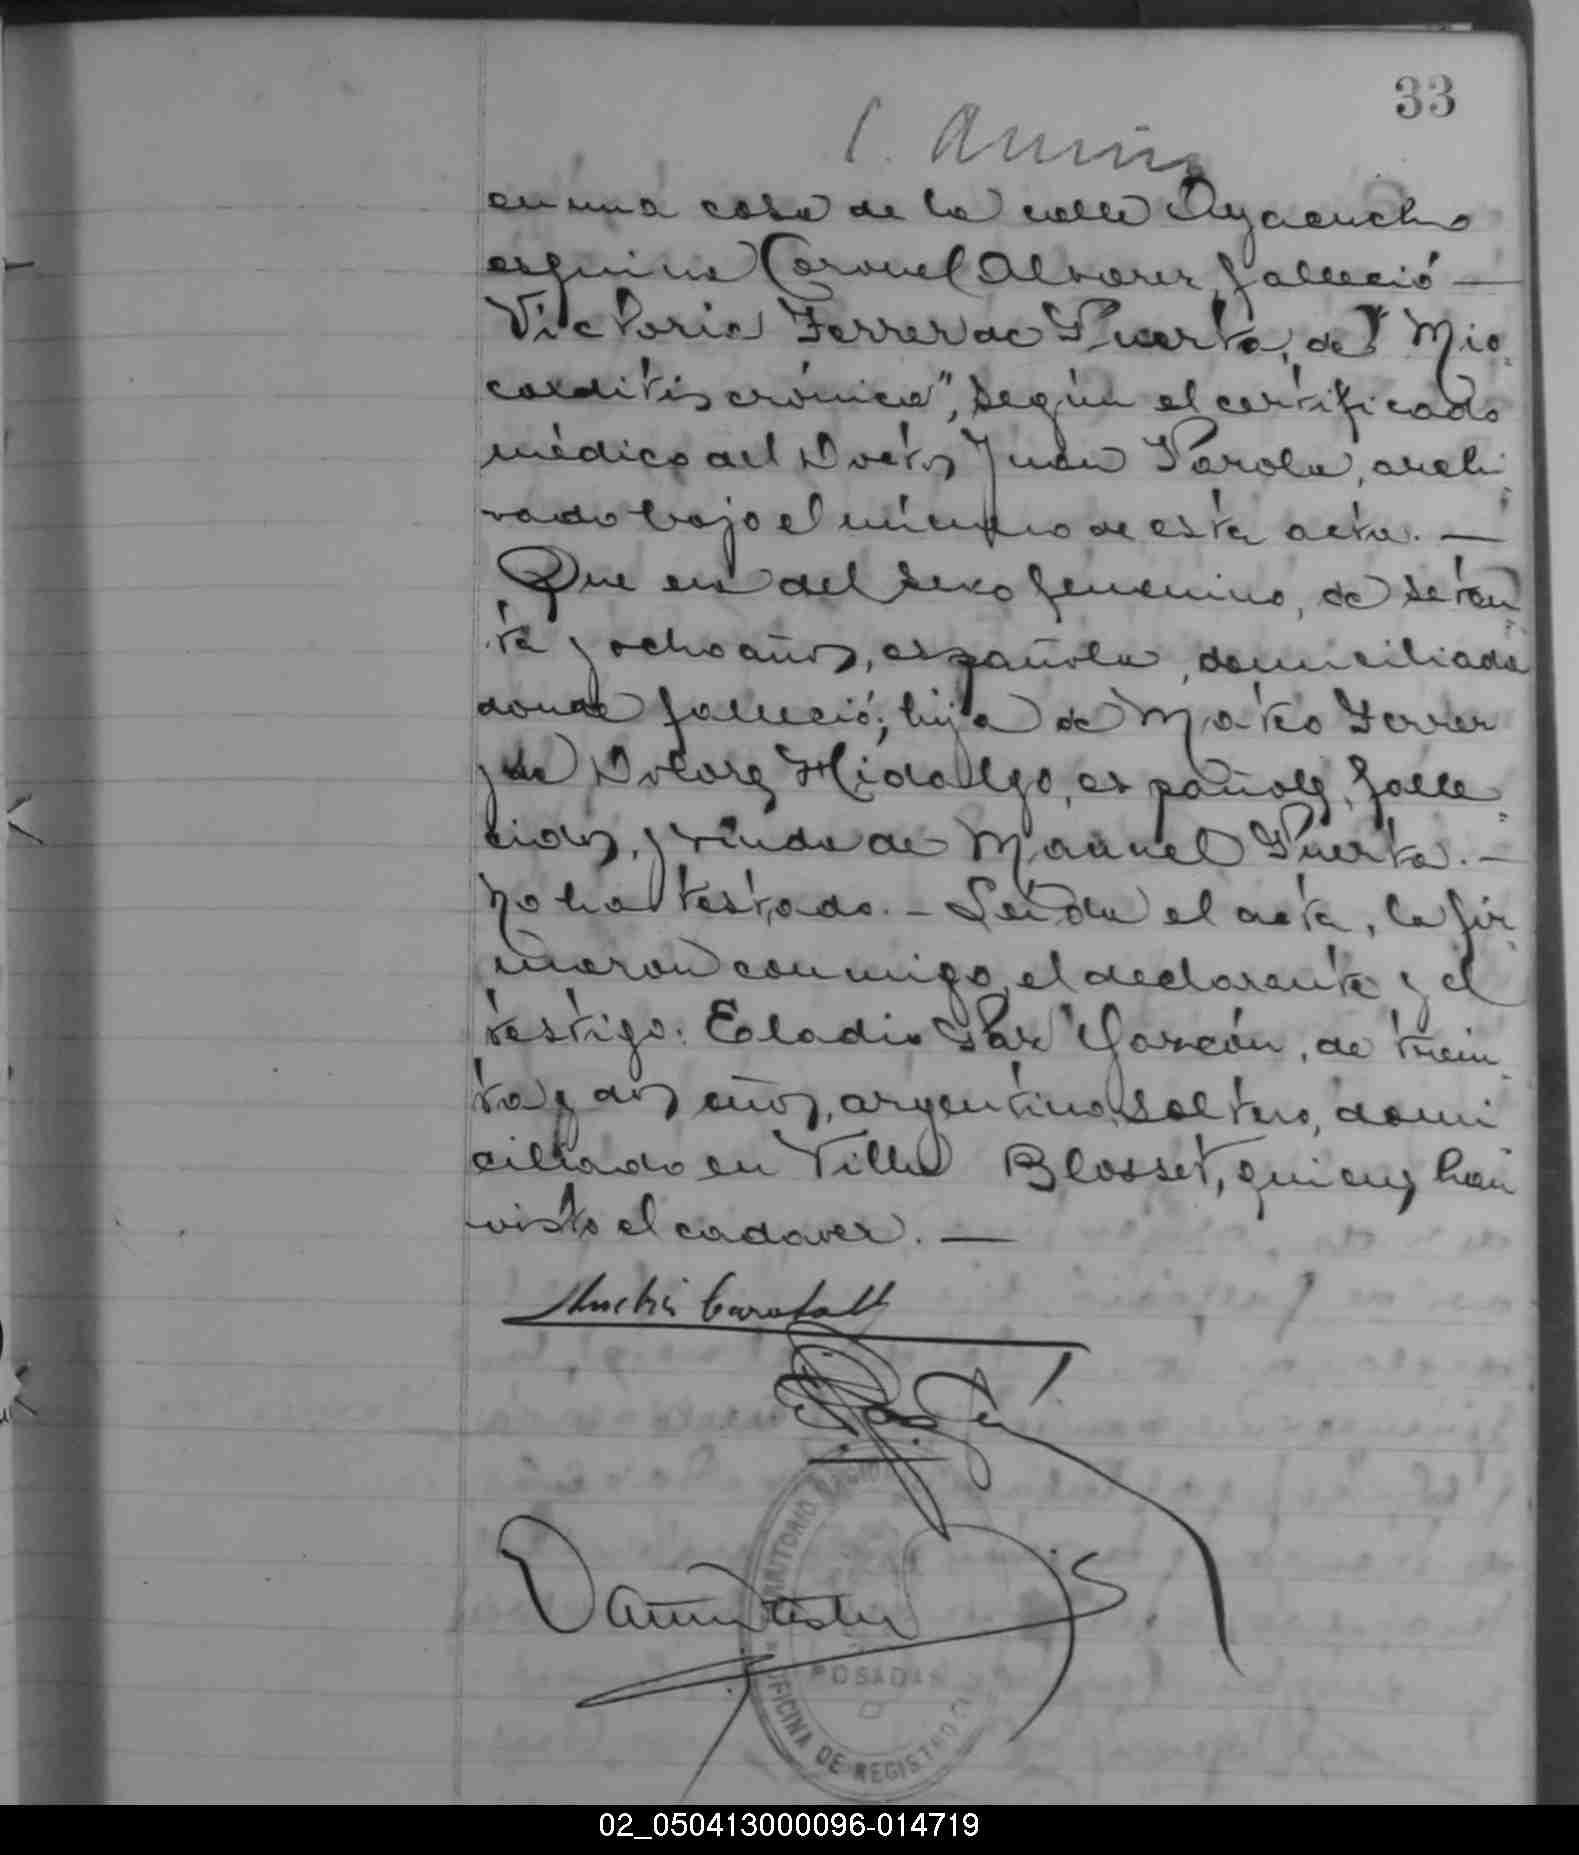 33
en una casa de la calle Ayacucho
esquina Coronel Alvarez, falleció —
Victoria Ferrer de Puerta, de "Mio-
carditis crónica", según el certificado
médico del Doctor Juan Parola, archi-
vado bajo el número de esta acta. —
Que era del sexo femenino, de seten-
ta y ocho años, española, domiciliada
donde falleció; hija de Mateo Ferrer
y de Dolores Hidalgo, españoles, falle-
cidos, y viuda de Manuel Puerta. —
No ha testado. — Leída el acta, la fir-
maron conmigo, el declarante y el
testigo: Eladio Garzón, de trein-
ta y dos años, argentino, soltero, domi
ciliado en Villa Blosset, quienes han
visto el cadaver. —
POSADAS
OFICINA DE REGISTRO
02_050413000096-014719